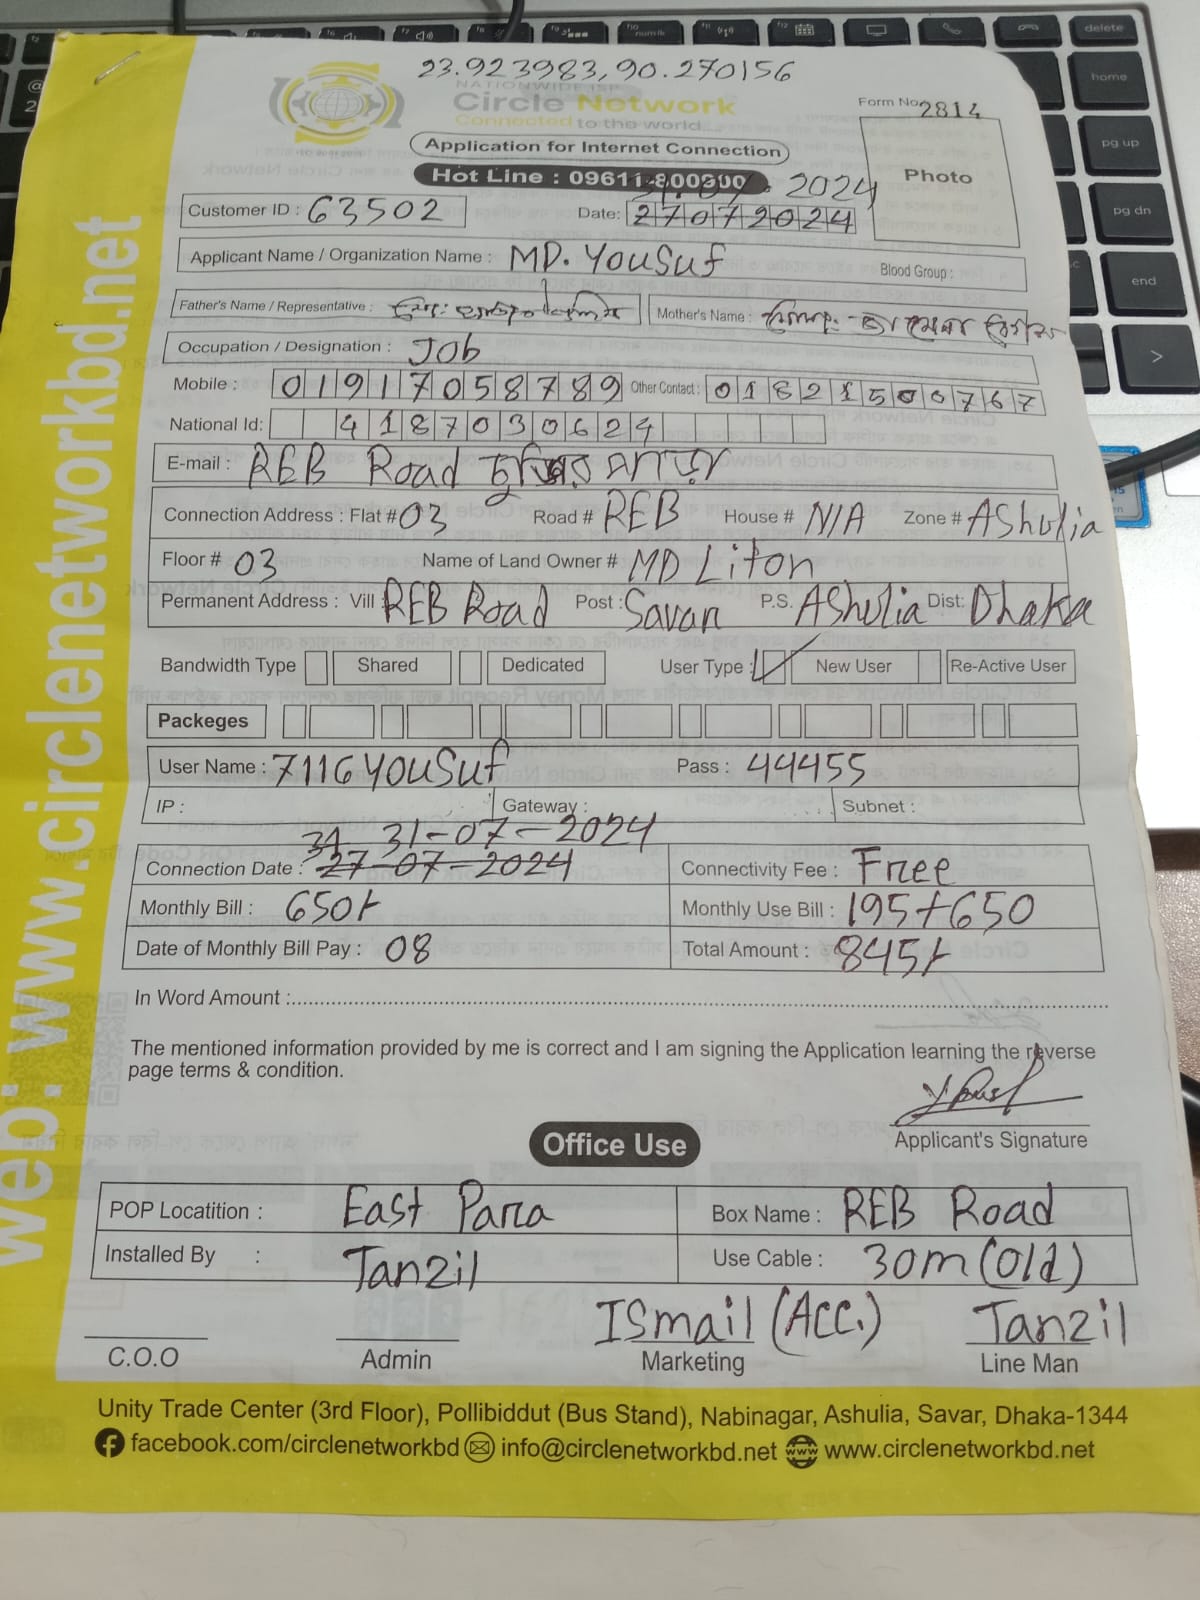 23.923983, 90.270156
NATIONWIDE ISP
Circle Network
Connected to the world
Form No. 2814
Application for Internet Connection
Hot Line : 09611-800900
Photo
2024
Customer ID : 63502 Date: 27072024
Applicant Name / Organization Name : MD. YouSuf Blood Group :
Father's Name / Representative : Mother's Name :
Occupation / Designation : Job
Mobile : 01917058789 Other Contact : 01821500767
National Id: 4187030624
E-mail : REB Road
Connection Address : Flat # 03 Road # REB House # N/A Zone # AShulia
Floor # 03 Name of Land Owner # MD Liton
Permanent Address : Vill : REB Road Post : Savar P.S. AShulia Dist: Dhaka
Bandwidth Type Shared Dedicated User Type : New User Re-Active User
Packeges
User Name : 7116YouSuf Pass : 44455
IP : Gateway : Subnet :
31-07-2024
Connection Date : 27-07-2024 Connectivity Fee : Free
Monthly Bill : 650/- Monthly Use Bill : 195+650
Date of Monthly Bill Pay : 08 Total Amount : 845/-
In Word Amount :
The mentioned information provided by me is correct and I am signing the Application learning the reverse
page terms & condition.
Applicant's Signature
Office Use
POP Locatition : East Para Box Name : REB Road
Installed By : Tanzil Use Cable : 30m (old)
ISmail (Acc.) Tanzil
C.O.O Admin Marketing Line Man
Unity Trade Center (3rd Floor), Pollibiddut (Bus Stand), Nabinagar, Ashulia, Savar, Dhaka-1344
facebook.com/circlenetworkbd info@circlenetworkbd.net www.circlenetworkbd.net
web: www.circlenetworkbd.net
delete
home
pg up
pg dn
end